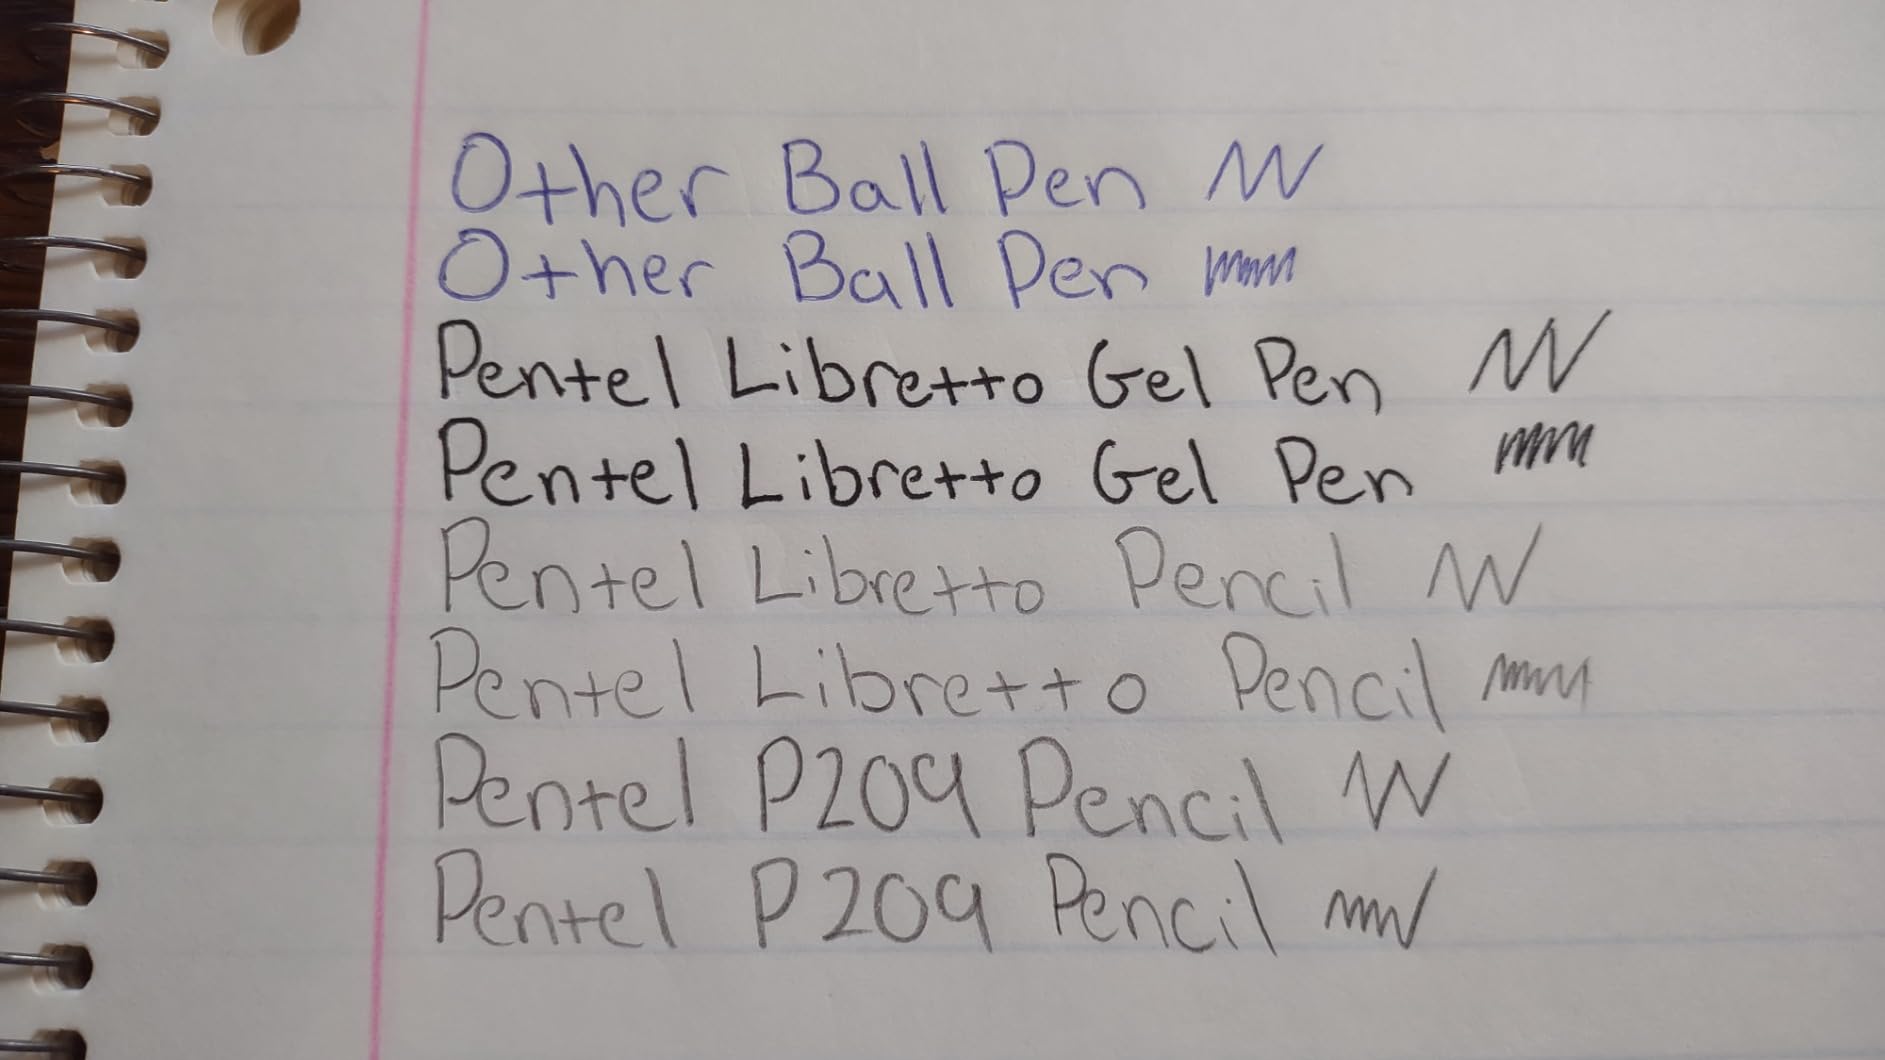 Other Ball Pen
Other Ball Pen
Pentel Libretto Gel Pen
Pentel Libretto Gel Pen
Pentel Libretto Pencil
Pentel Libretto Pencil
Pentel P209 Pencil
Pentel P209 Pencil